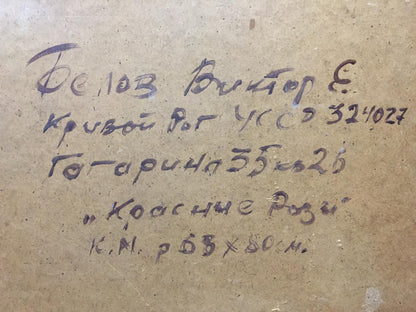 Белов Виктор Е
Кривой Рог УССР 324027
Гагарина 35 кв 26
„Красные Розы"
К.М. р 63 х 80см.